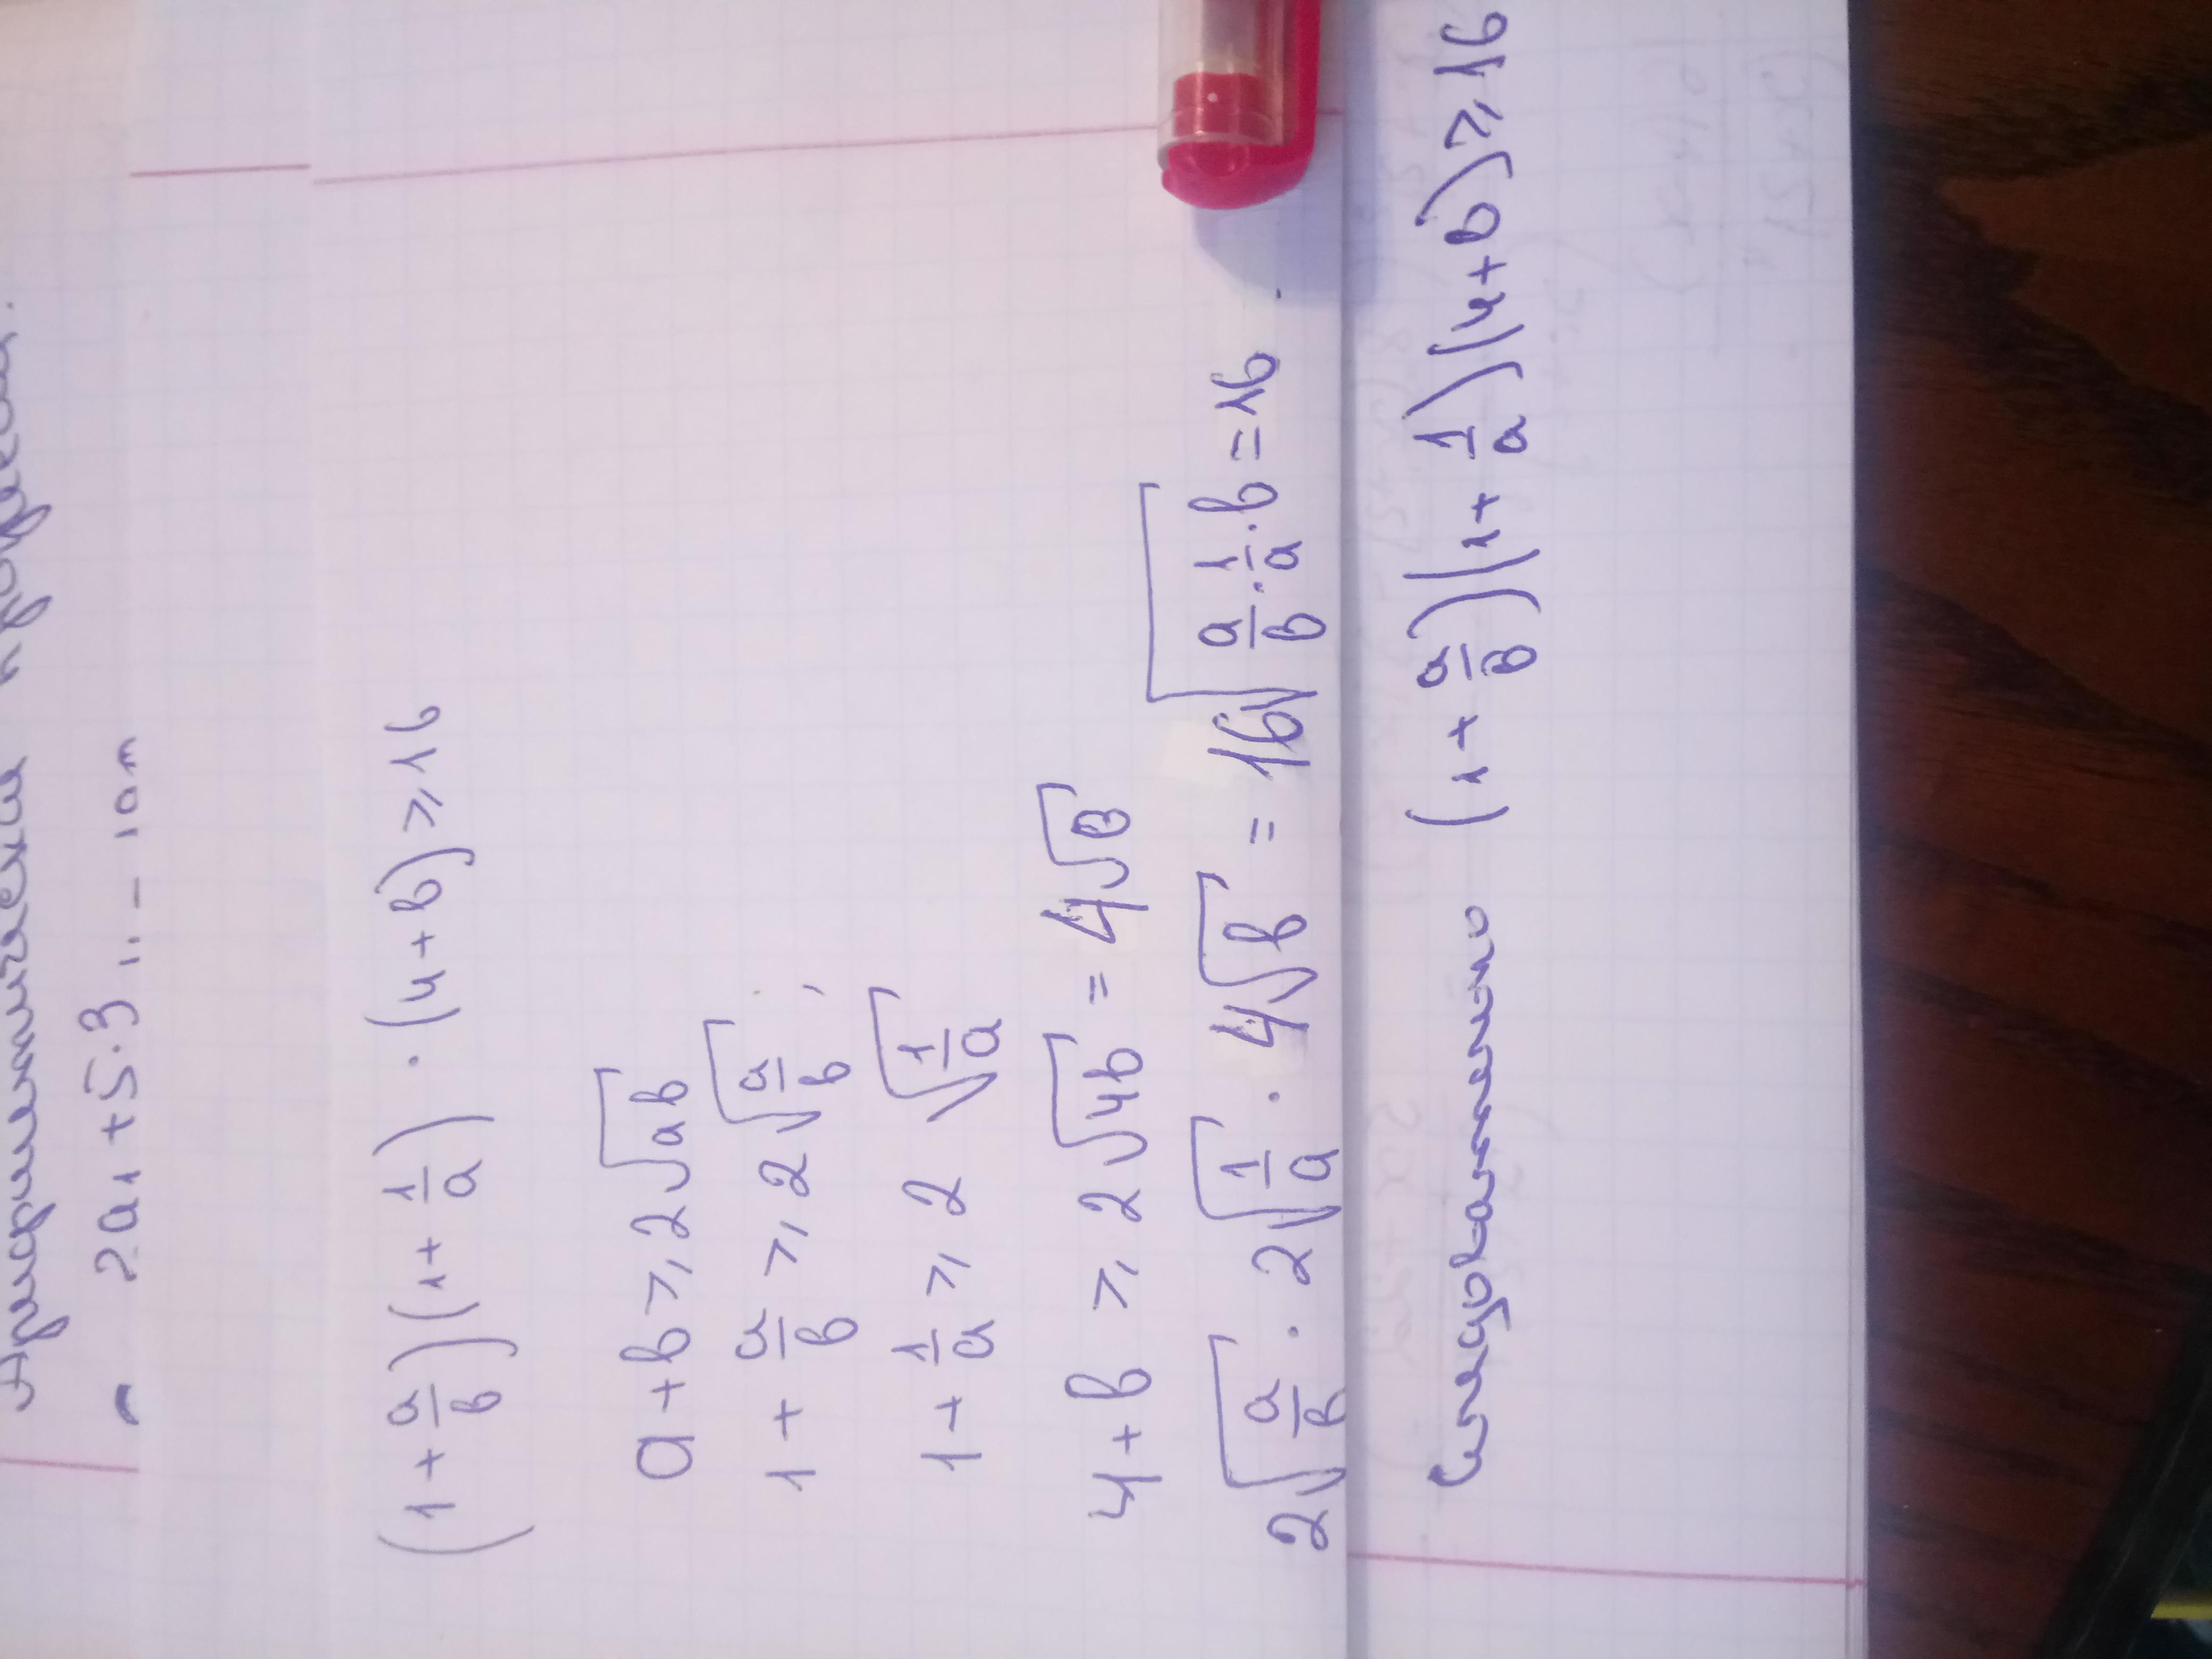 2a₁ + 5·3
(1 + a/b)(1 + 1/a) · (4 + b) ≥ 16
a + b ≥ 2√ab
1 + a/b ≥ 2√a/b,
1 + 1/a ≥ 2 √1/a
4 + b ≥ 2√4b = 4√b
2√a/b · 2√1/a · 4√b = 16√a/b · 1/a · b = 16
(1 + a/b)(1 + 1/a)(4 + b) ≥ 16